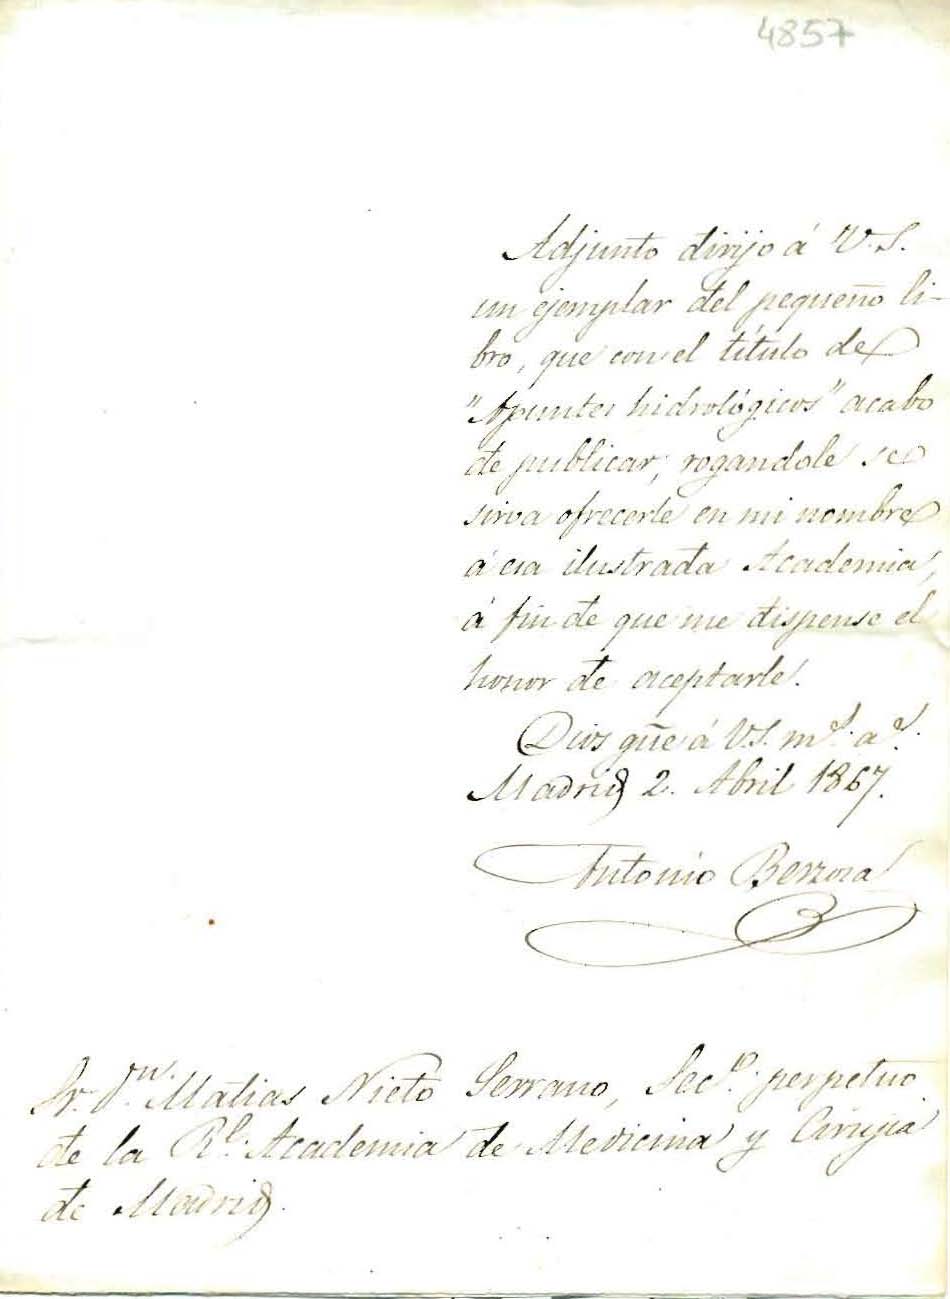 4857
Adjunto dirijo á V.S.
un ejemplar del pequeño li-
bro, que con el título de
"Apuntes hidrológicos" acabo
de publicar; rogandole se
sirva ofrecerle en mi nombre
á esa ilustrada Academia,
á fin de que me dispense el
honor de aceptarle.
Dios güe á V.S. mˢ. aˢ.
Madrid 2. Abril 1867.
Antonio Berzosa
Sr. Dⁿ. Matias Nieto Serrano, Secº. perpetuo
de la Rˡ. Academia de Medicina y Cirujia
de Madrid.